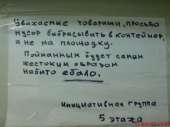 Уважаемые товарищи, просьба
мусор выбрасывать в контейнер,
а не на площадку.
Пойманным будет самым
жестоким образом
набито ебало.
Инициативная группа
5 этажа